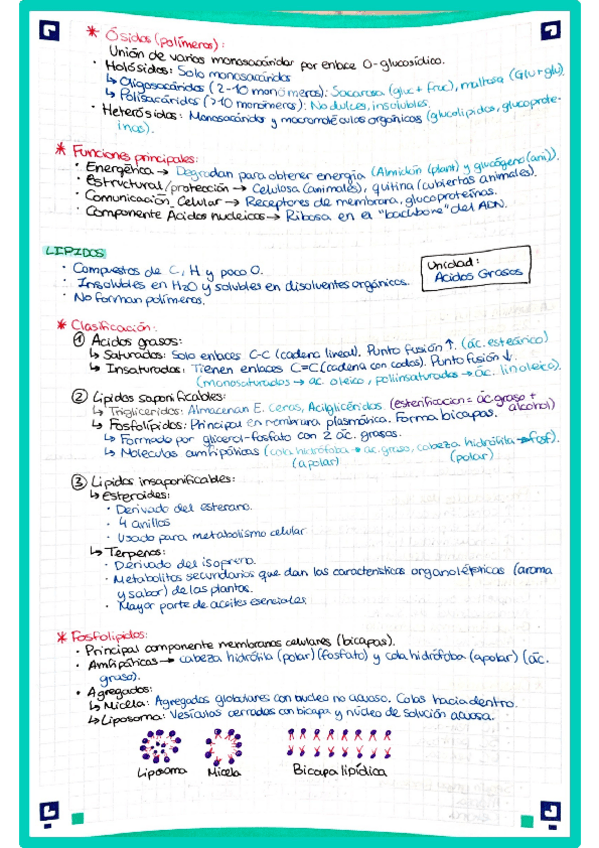 * Ósidos (polímeros):
Unión de varios monosacáridos por enlace O-glucosídico.
· Holósidos: Solo monosacáridos
↳ Oligosacáridos (2-10 monómeros): Sacarosa (gluc + fruc), maltosa (Glu+glu).
↳ Polisacáridos (>10 monómeros): No dulces, insolubles.
· Heterósidos: Monosacárido y macromoléculas orgánicas (glucolípidos, glucoproteinas).
* Funciones principales:
· Energética → Degradan para obtener energía (Almidón (plant) y glucógeno (ani)).
· Estructural/protección → Celulosa (animales), quitina (cubiertas animales).
· Comunicación Celular → Receptores de membrana, glucoproteínas.
· Componente Ácidos nucleicos → Ribosa en el "backbone" del ADN.
LIPIDOS
· Compuestos de C, H y poco O.
· Insolubles en H2O y solubles en disolventes orgánicos.
· No forman polímeros.
Unidad:
Ácidos Grasos
* Clasificación:
① Ácidos grasos:
↳ Saturados: Solo enlaces C-C (cadena lineal). Punto fusión ↑. (ác. esteárico)
↳ Insaturados: Tienen enlaces C=C (cadena con codos). Punto fusión ↓.
(monosaturados → ac. oleico, poliinsaturados → ác. linoleico).
② Lípidos saponificables:
↳ Trigliceridos: Almacenan E. Ceras, Acilglicéridos. (esterificacion = ác. graso + alcohol)
↳ Fosfolípidos: Principal en membrana plasmática. Forma bicapas.
↳ Formado por glicerol-fosfato con 2 ác. grasos.
↳ Moleculas amfipáticas (cola hidrófoba → ac. graso, cabeza hidrófila → fosf).
(apolar) (polar)
③ Lipidos insaponificables:
↳ Esteroides:
· Derivado del esterano.
· 4 anillos
· Usado para metabolismo celular
↳ Terpenos:
· Derivado del isopreno.
· Metabolitos secundarios que dan las características organolépticas (aroma
y sabor) de las plantas.
· Mayor parte de aceites esenciales
* Fosfolipidos:
· Principal componente membranas celulares (bicapas).
· Amfipáticos → cabeza hidrófila (polar) (fosfato) y cola hidrófoba (apolar) (ác.
graso).
· Agregados:
↳ Micela: Agregados globulares con nucleo no acuoso. Colas hacia dentro.
↳ Liposoma: Vesículas cerradas con bicapa y núcleo de solución acuosa.
Liposoma Micela Bicapa lipídica